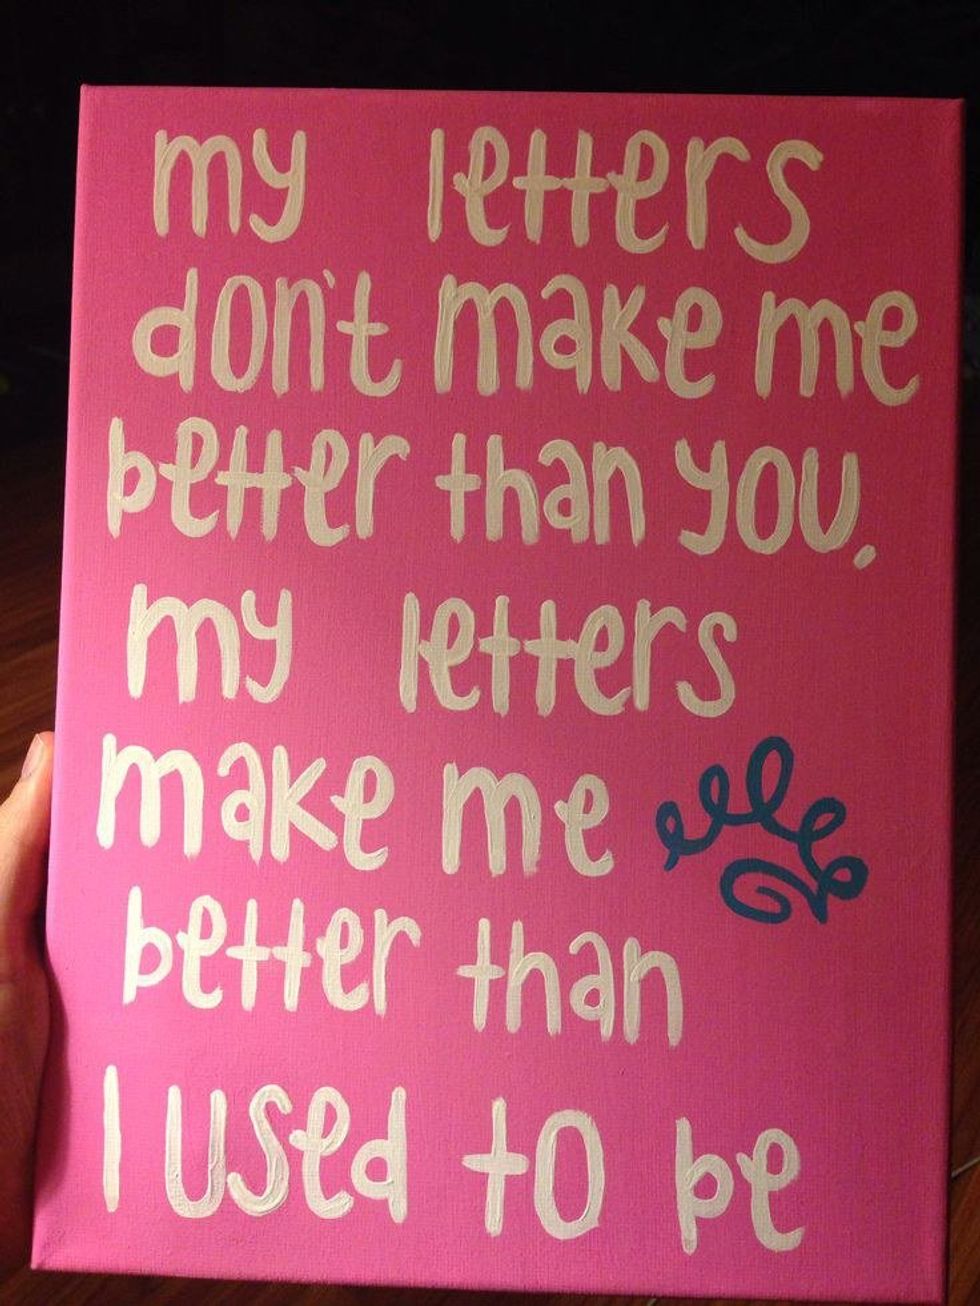 my letters
don't make me
better than you,
my letters
make me
better than
I used to be